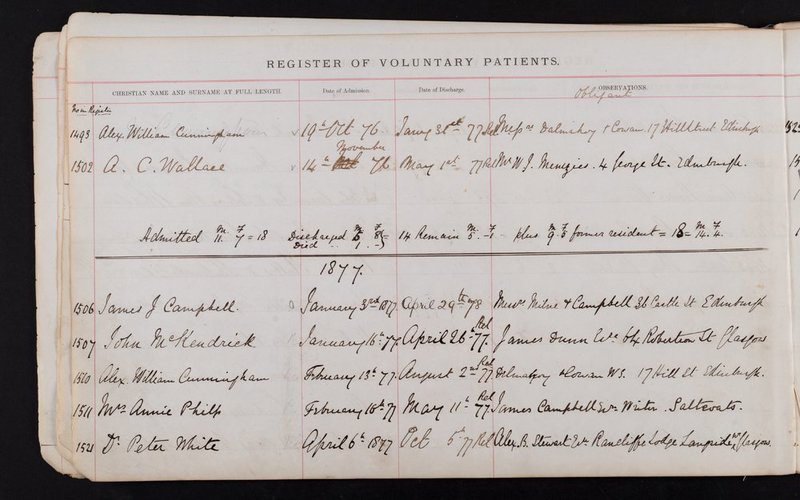 REGISTER OF VOLUNTARY PATIENTS.
CHRISTIAN NAME AND SURNAME AT FULL LENGTH. Date of Admission. Date of Discharge. OBSERVATIONS.
No in Register Obligant
1493 Alex. William Cunningham 19th Oct 76 Jany 31st 77 Rel Messrs Dalmahoy & Cowan 17 Hill Street Edinburgh
November
1502 A. C. Wallace 14th 76 May 1st 77 Rel Mr W. J. Menzies. 4 George St. Edinburgh.
Admitted M. 11. F. 7 = 18 Discharged M. F. 8 14 Remain M. 5. F. 1 plus M. 9. F. 3 former resident = 18 = M. 14. F. 4.
Died 1.
1877.
1506 James J Campbell. January 3rd 1877. April 29th 78 Messrs Milne & Campbell 36 Castle St Edinburgh
1507 John McKendrick January 16th 77. April 26th 77. Rel James Dunn 64 Robertson St Glasgow
1510 Alex. William Cunningham February 13th 77. August 2nd 77 Rel Dalmahoy & Cowan W.S. 17 Hill St Edinburgh.
1511 Mrs Annie Philp February 16th 77 May 11th 77. Rel James Campbell Writer. Saltcoats.
1521 Dr Peter White April 6th 1877 Oct 5th 77 Rel Alex. B. Stewart Rancliffe Lodge Langside Glasgow